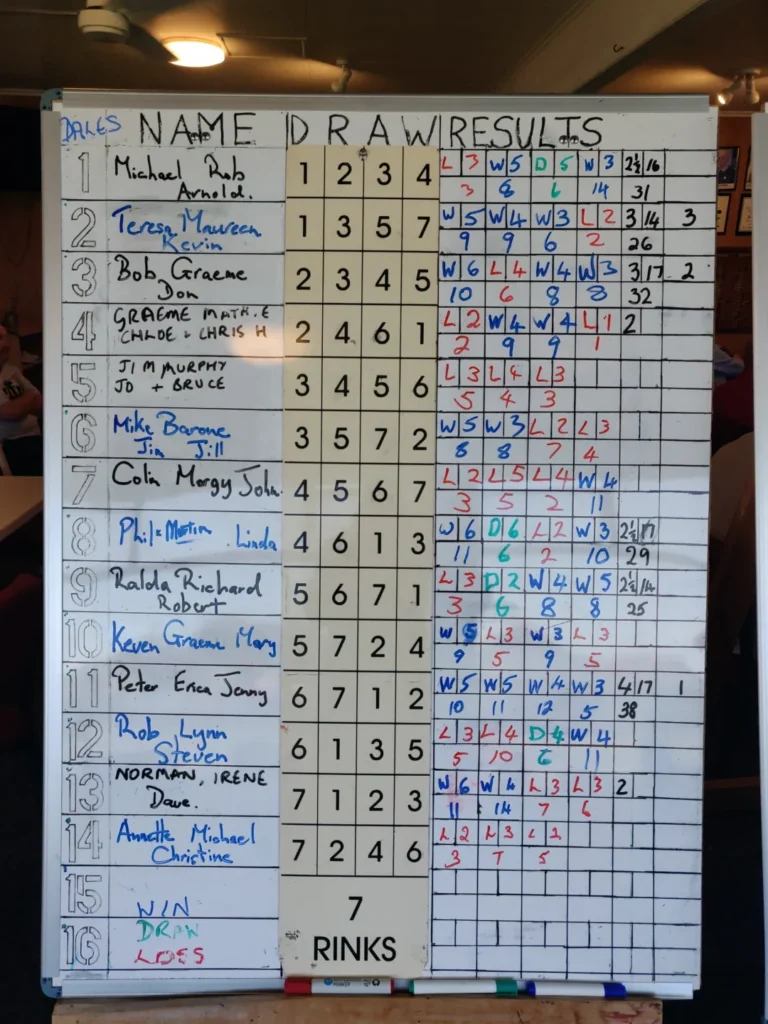 DALES NAME DRAW RESULTS
1 Michael Rob 1 2 3 4 L 3 W 5 D 5 W 3 2½ 16
Arnold. 3 8 6 14 31
2 Teresa Maureen 1 3 5 7 W 5 W 4 W 3 L 2 3 14 3
Kevin 9 9 6 2 26
3 Bob Graeme 2 3 4 5 W 6 L 4 W 4 W 3 3 17 2
Don 10 6 8 8 32
4 GRAEME 2 4 6 1 L 2 W 4 W 4 L 1 2
CHLOE + CHRIS H 2 9 9 1
5 JIM MURPHY 3 4 5 6 L 3 L 4 L 3
JO + BRUCE 5 4 3
6 Mike Barone 3 5 7 2 W 5 W 3 L 2 L 3
Jim Jill 8 8 7 4
7 Colin Morgy John 4 5 6 7 L 2 L 5 L 4 W 4
3 5 2 11
8 Phil Linda 4 6 1 3 W 6 D 6 L 2 W 3 2½ 17
11 6 2 10 29
9 Ralda Richard 5 6 7 1 L 3 D 2 W 4 W 5 2½ 14
Robert 3 6 8 8 25
10 Keven Graeme Mary 5 7 2 4 W 5 L 3 W 3 L 3
9 5 9 5
11 Peter Erica Jenny 6 7 1 2 W 5 W 5 W 4 W 3 4 17 1
10 11 12 5 38
12 Rob Lynn 6 1 3 5 L 3 L 4 D 4 W 4
Steven 5 10 6 11
13 NORMAN, IRENE 7 1 2 3 W 6 W 4 L 3 L 3 2
Dave. 11 14 7 6
14 Annette Michael 7 2 4 6 L 2 L 3 L 2
Christine 3 7 5
15
WIN 7
16 DRAW RINKS
LOSS